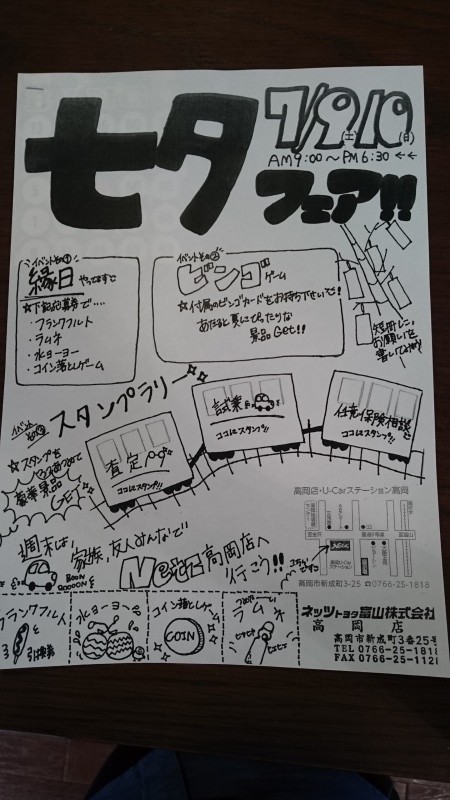 七夕
7/9(土)10(日)
AM9:00～PM6:30
フェア!!
イベントその①
縁日 やってますで
☆下記応募券で・・・・
・フランクフルト
・ラムネ
・水ヨーヨー
・コイン落としゲーム
イベントその②
ビンゴゲーム
☆付属のビンゴカードをお持ち下さいで!
あたると夏にぴったりな
景品Get!!
短冊に、
お願いを
書いてみよう!
イベントその③
スタンプラリー
☆スタンプを
豪華景品
GET
査定
ココにスタンプ!!
試乗
ココにスタンプ!!
任意保険相談
ココにスタンプ!!
週末は、家族、友人みんなで
Netz高岡店へ
行こう!!
高岡店・U-Carステーション高岡
高岡市新成町3-25 0766-25-1818
フランクフルト
引換券
水ヨーヨー
コイン落としゲーム
COIN
ラムネ
ネッツトヨタ富山株式会社
高岡店
高岡市新成町3番25号
TEL 0766-25-181
FAX 0766-25-112